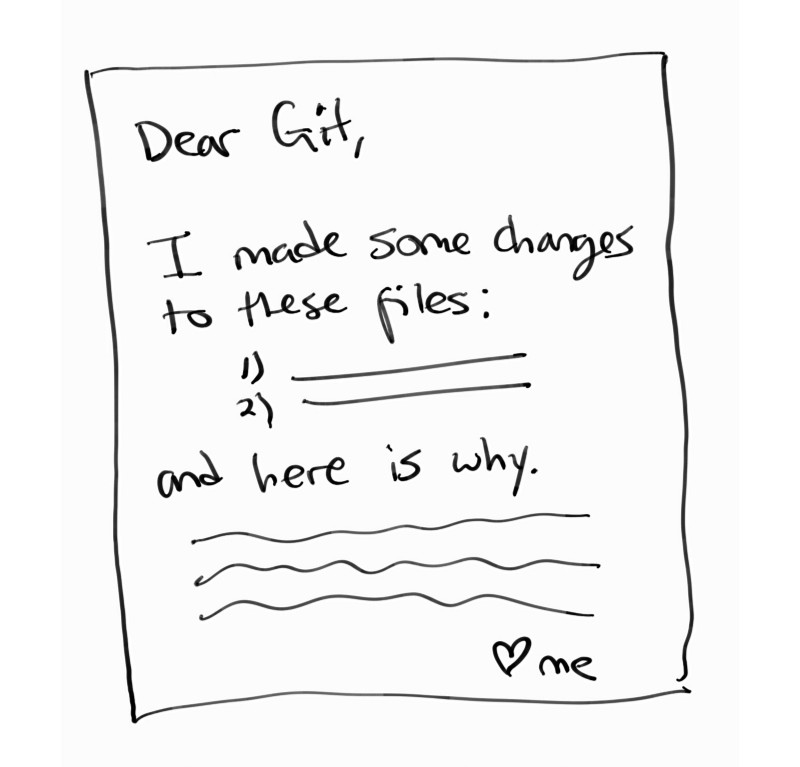 Dear Git,
I made some changes
to these files:
1)
2)
and here is why.
♡ me